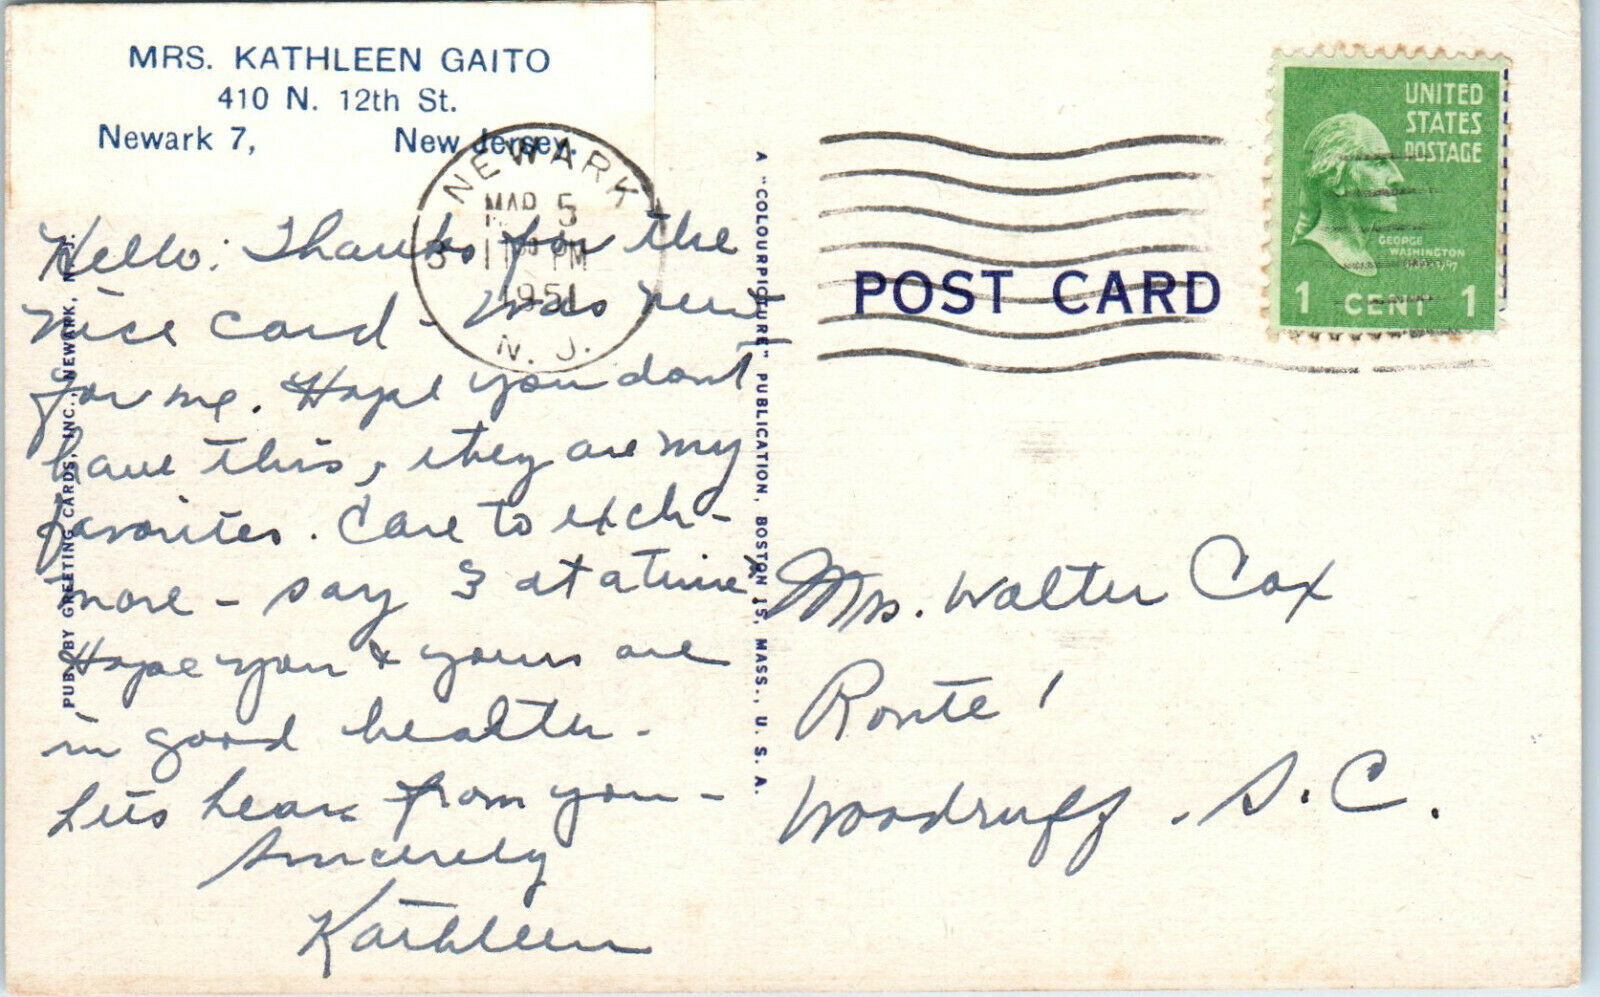 MRS. KATHLEEN GAITO
410 N. 12th St.
Newark 7, New Jersey.
NEWARK
MAR 5
11 PM
1951
N. J.
3
Hello: Thanks for the
nice card - Was new
for me. Hope you dont
have this, they are my
favorites. Care to exch-
more - say 3 at a time
Hope you & yours are
in good health -
Lets hear from you -
Sincerely
Kathleen
PUB. BY GREETING CARDS, INC., NEWARK, N. J.
A "COLOURPICTURE" PUBLICATION, BOSTON 15, MASS., U. S. A.
POST CARD
UNITED
STATES
POSTAGE
GEORGE
WASHINGTON
1 CENT 1
Mrs. Walter Cox
Route 1
Woodruff, S.C.